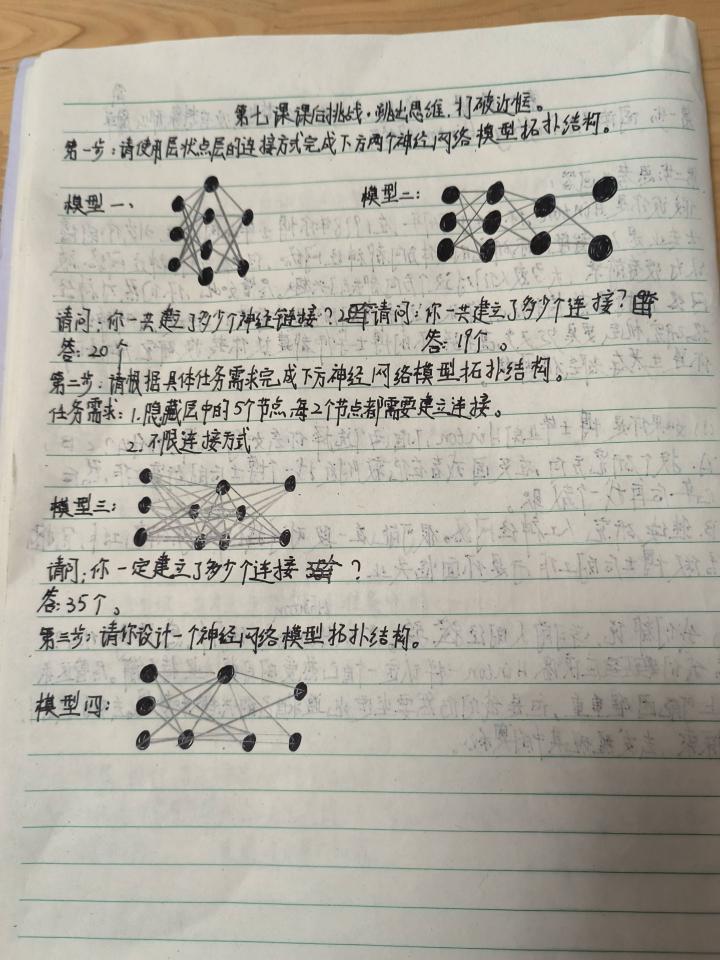 第七课课后挑战·跳出思维,打破边框。
第一步:请使用层状点层的连接方式完成下方两个神经网络模型拓扑结构。
模型一、
模型二:
请问:你一共建立了多少个神经链接?
请问:你一共建立了多少个连接?
答:20个
答:19个。
第二步:请根据具体任务需求完成下方神经网络模型拓扑结构。
任务需求:1.隐藏层中的5个节点,每2个节点都需要建立连接。
2.不限连接方式
模型三:
请问:你一定建立了多少个连接?
答:35个。
第三步:请你设计一个神经网络模型拓扑结构。
模型四: